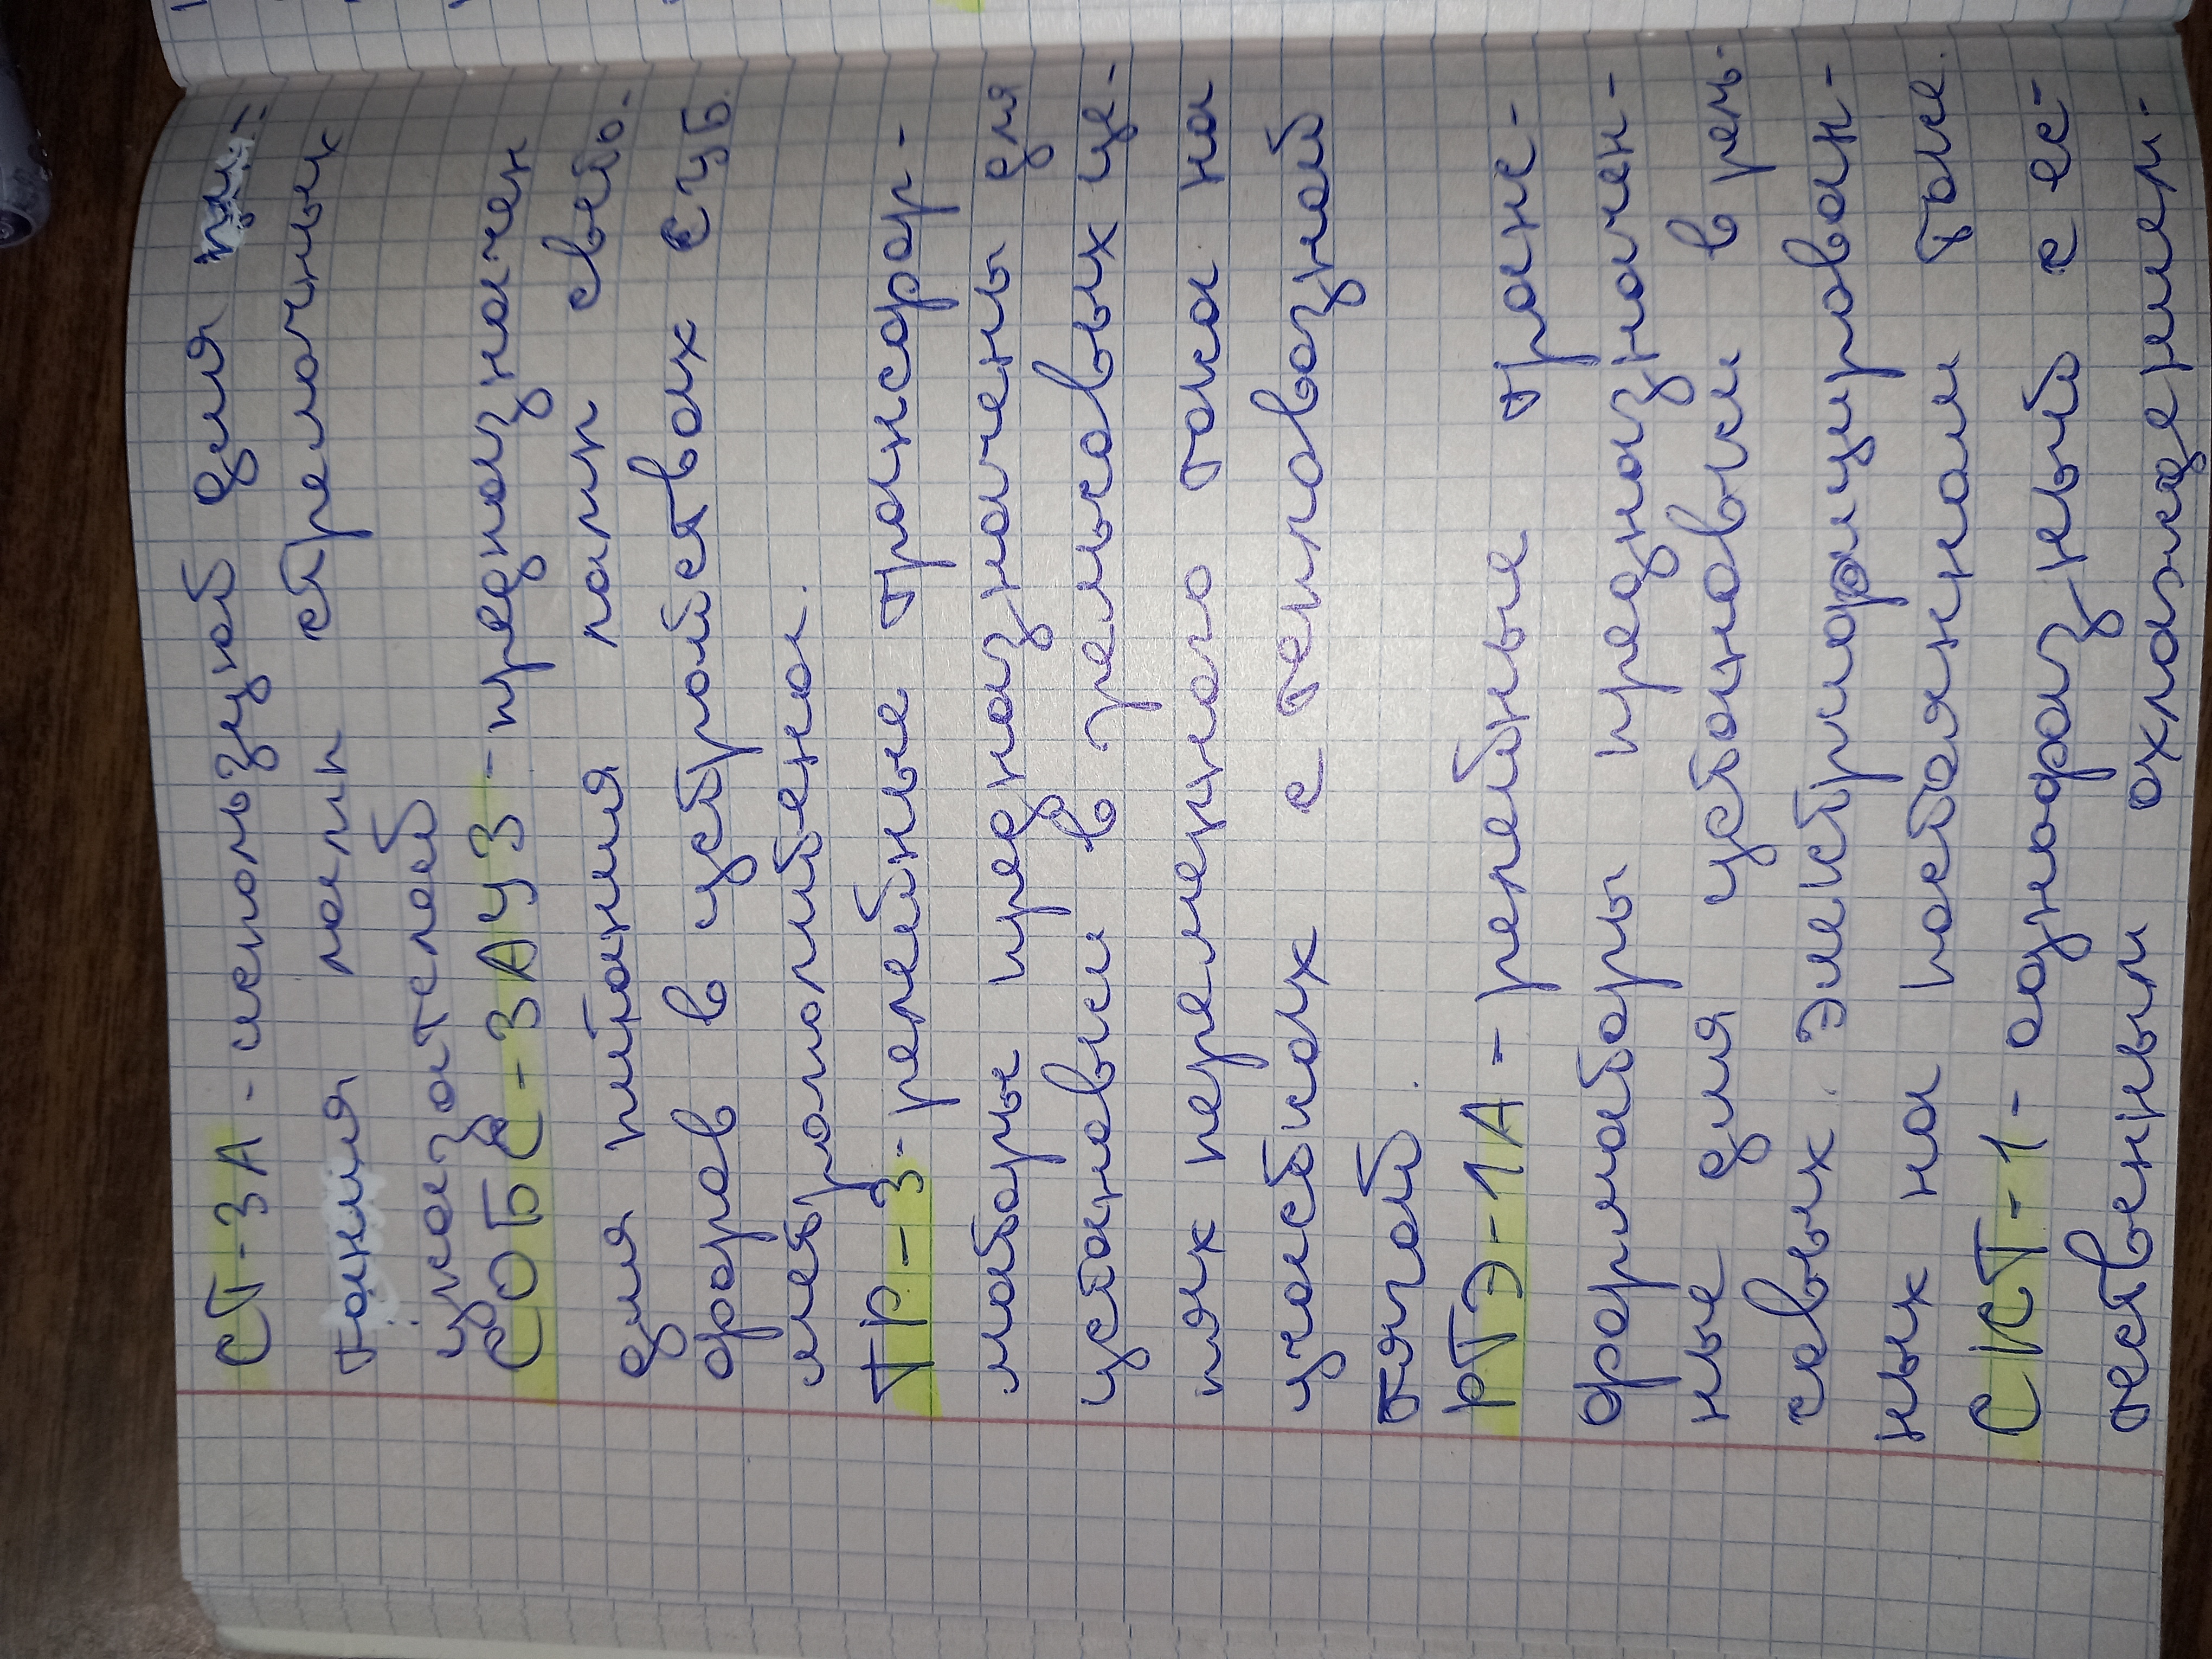 СТ-3А - используют для пи-
тания ламп стрелочных
указателей
СОБС-3АУЗ - предназначен
для питания ламп свето-
форов в устройствах СЦБ
метрополитена.
ТР-3 - релейные трансфор-
маторы предназначены для
установки в рельсовых це-
пях переменного тока на
участках с тепловозной
тягой.
РТЭ-1А - релейные транс-
форматоры предназначен-
ные для установки в рель-
совых. Электрифицирован-
ных на постоянном токе.
СКТ-1 - однофазный с ес-
тественным охлаждением.